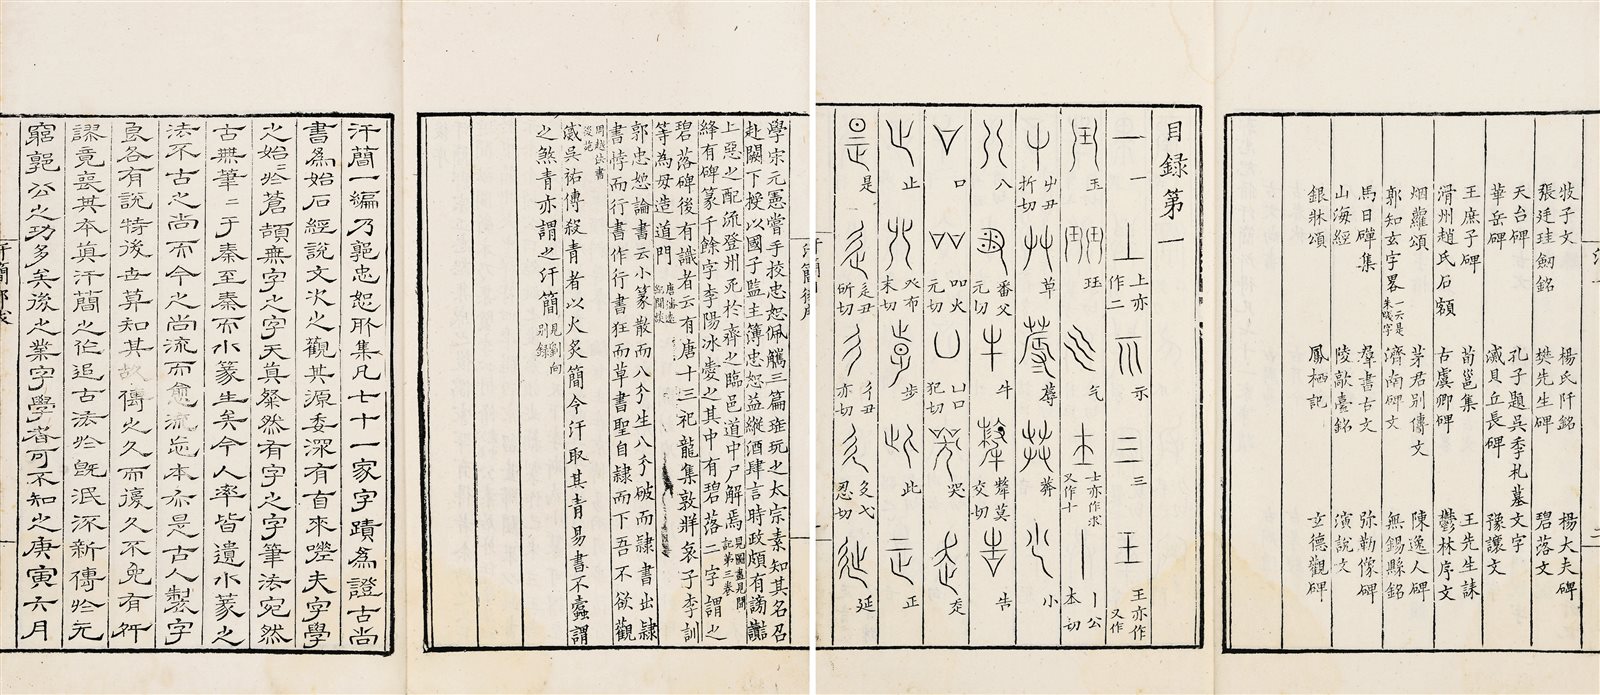 牧子文　楊氏阡銘　楊大夫碑
張廷珪劒銘　樊先生碑　碧落文
天台碑　孔子題吳季札墓文字
華岳碑　滅貝丘長碑　豫讓文
王庶子碑　荀邕集　王先生誄
滑州趙氏石額　古虞卿碑　鬱林序文
烟蘿頌　茅君別傳文　陳逸人碑
郭知玄字畧一云是朱箋字　濟南碑文　無錫縣銘
馬日磾集　羣書古文　弥勒像碑
山海經　陵歊臺銘　演說文
銀牀頌　鳳栖記　玄德觀碑
目録第一
一　上亦作二　示　三　王亦作　又作
玉　珏　气　士亦作求又作十　丨公本切
屮丑折切　草　蓐　茻　小
八　番父元切　牛　犛莫交切　告
口　吅火元切　凵口犯切　哭　走
止　癶布末切　步　此　正
是　辵丑所切　彳丑亦切　廴弋忍切　延
學宋元憲嘗手挍忠恕佩觿三篇珤玩之太宗素知其名召
赴闕下授以國子監主簿忠恕益縱酒肆言時政頗有謗讟
上惡之配流登州死於齊之臨邑道中尸解焉見圖畫見聞記第三卷
絳有碑篆千餘字李陽冰愛之其中有碧落二字謂之
碧落碑後有識者云有唐十三祀龍集敦牂哀子李訓
等為毋造道門
郭忠恕論書云小篆散而八分生八分破而隷書出隷
書悖而行書作行書狂而草書聖自隷而下吾不欲觀
周越法書
後苑
漢吳祐傳殺青者以火炙簡令汗取其青易書不蠹謂
之煞青亦謂之汗簡見劉向別錄
汗簡後序
汗簡一編乃郭忠恕所集凡七十一家字蹟為證古尚
書為始石經說文次之觀其源委深有自來嗟夫字學
之始於蒼頡無字之字天真粲然有字之字筆法宛然
古無筆筆于秦至秦而小篆生矣今人率皆遺小篆之
法不古之尚而今之尚流而愈流忘本亦是古人製字
良各有說特後世算知其故傳之久而復久不免有衍
謬竟喪其本真汗簡之作追古法於旣泯涿新傳於元
窮郭公之功多矣後之業字學者可不知之庚寅六月